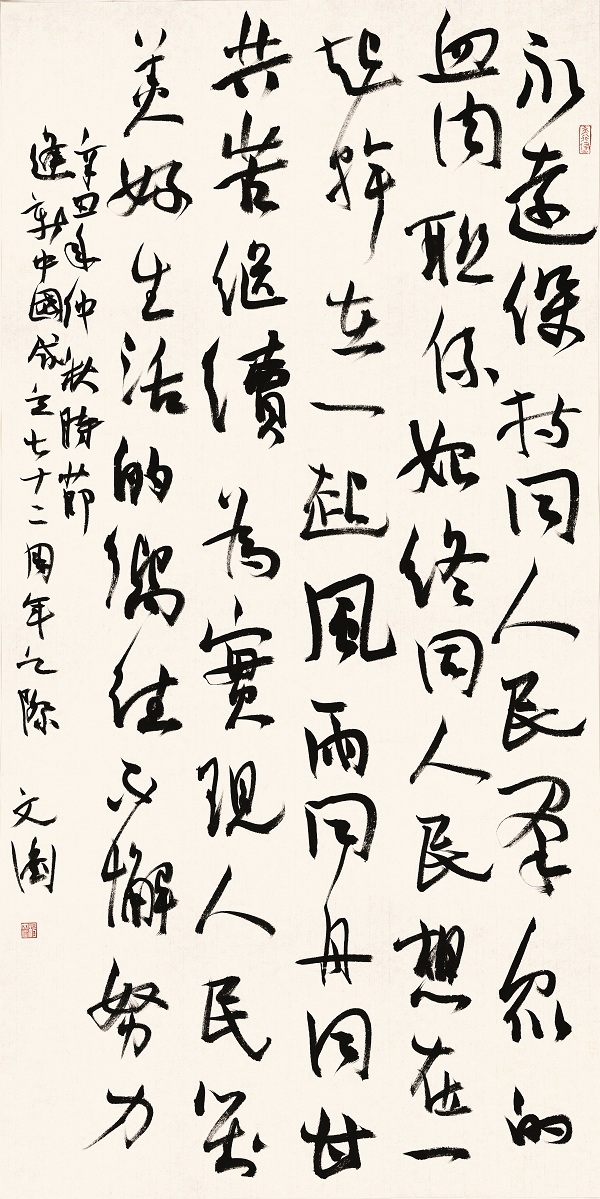 永遠保持同人民羣衆的
血肉聯係始終同人民想在一
起幹在一起風雨同舟同甘
共苦繼續為實現人民對
美好生活的嚮往不懈努力
辛丑年仲秋時節
逢新中國成立七十二周年之際 文